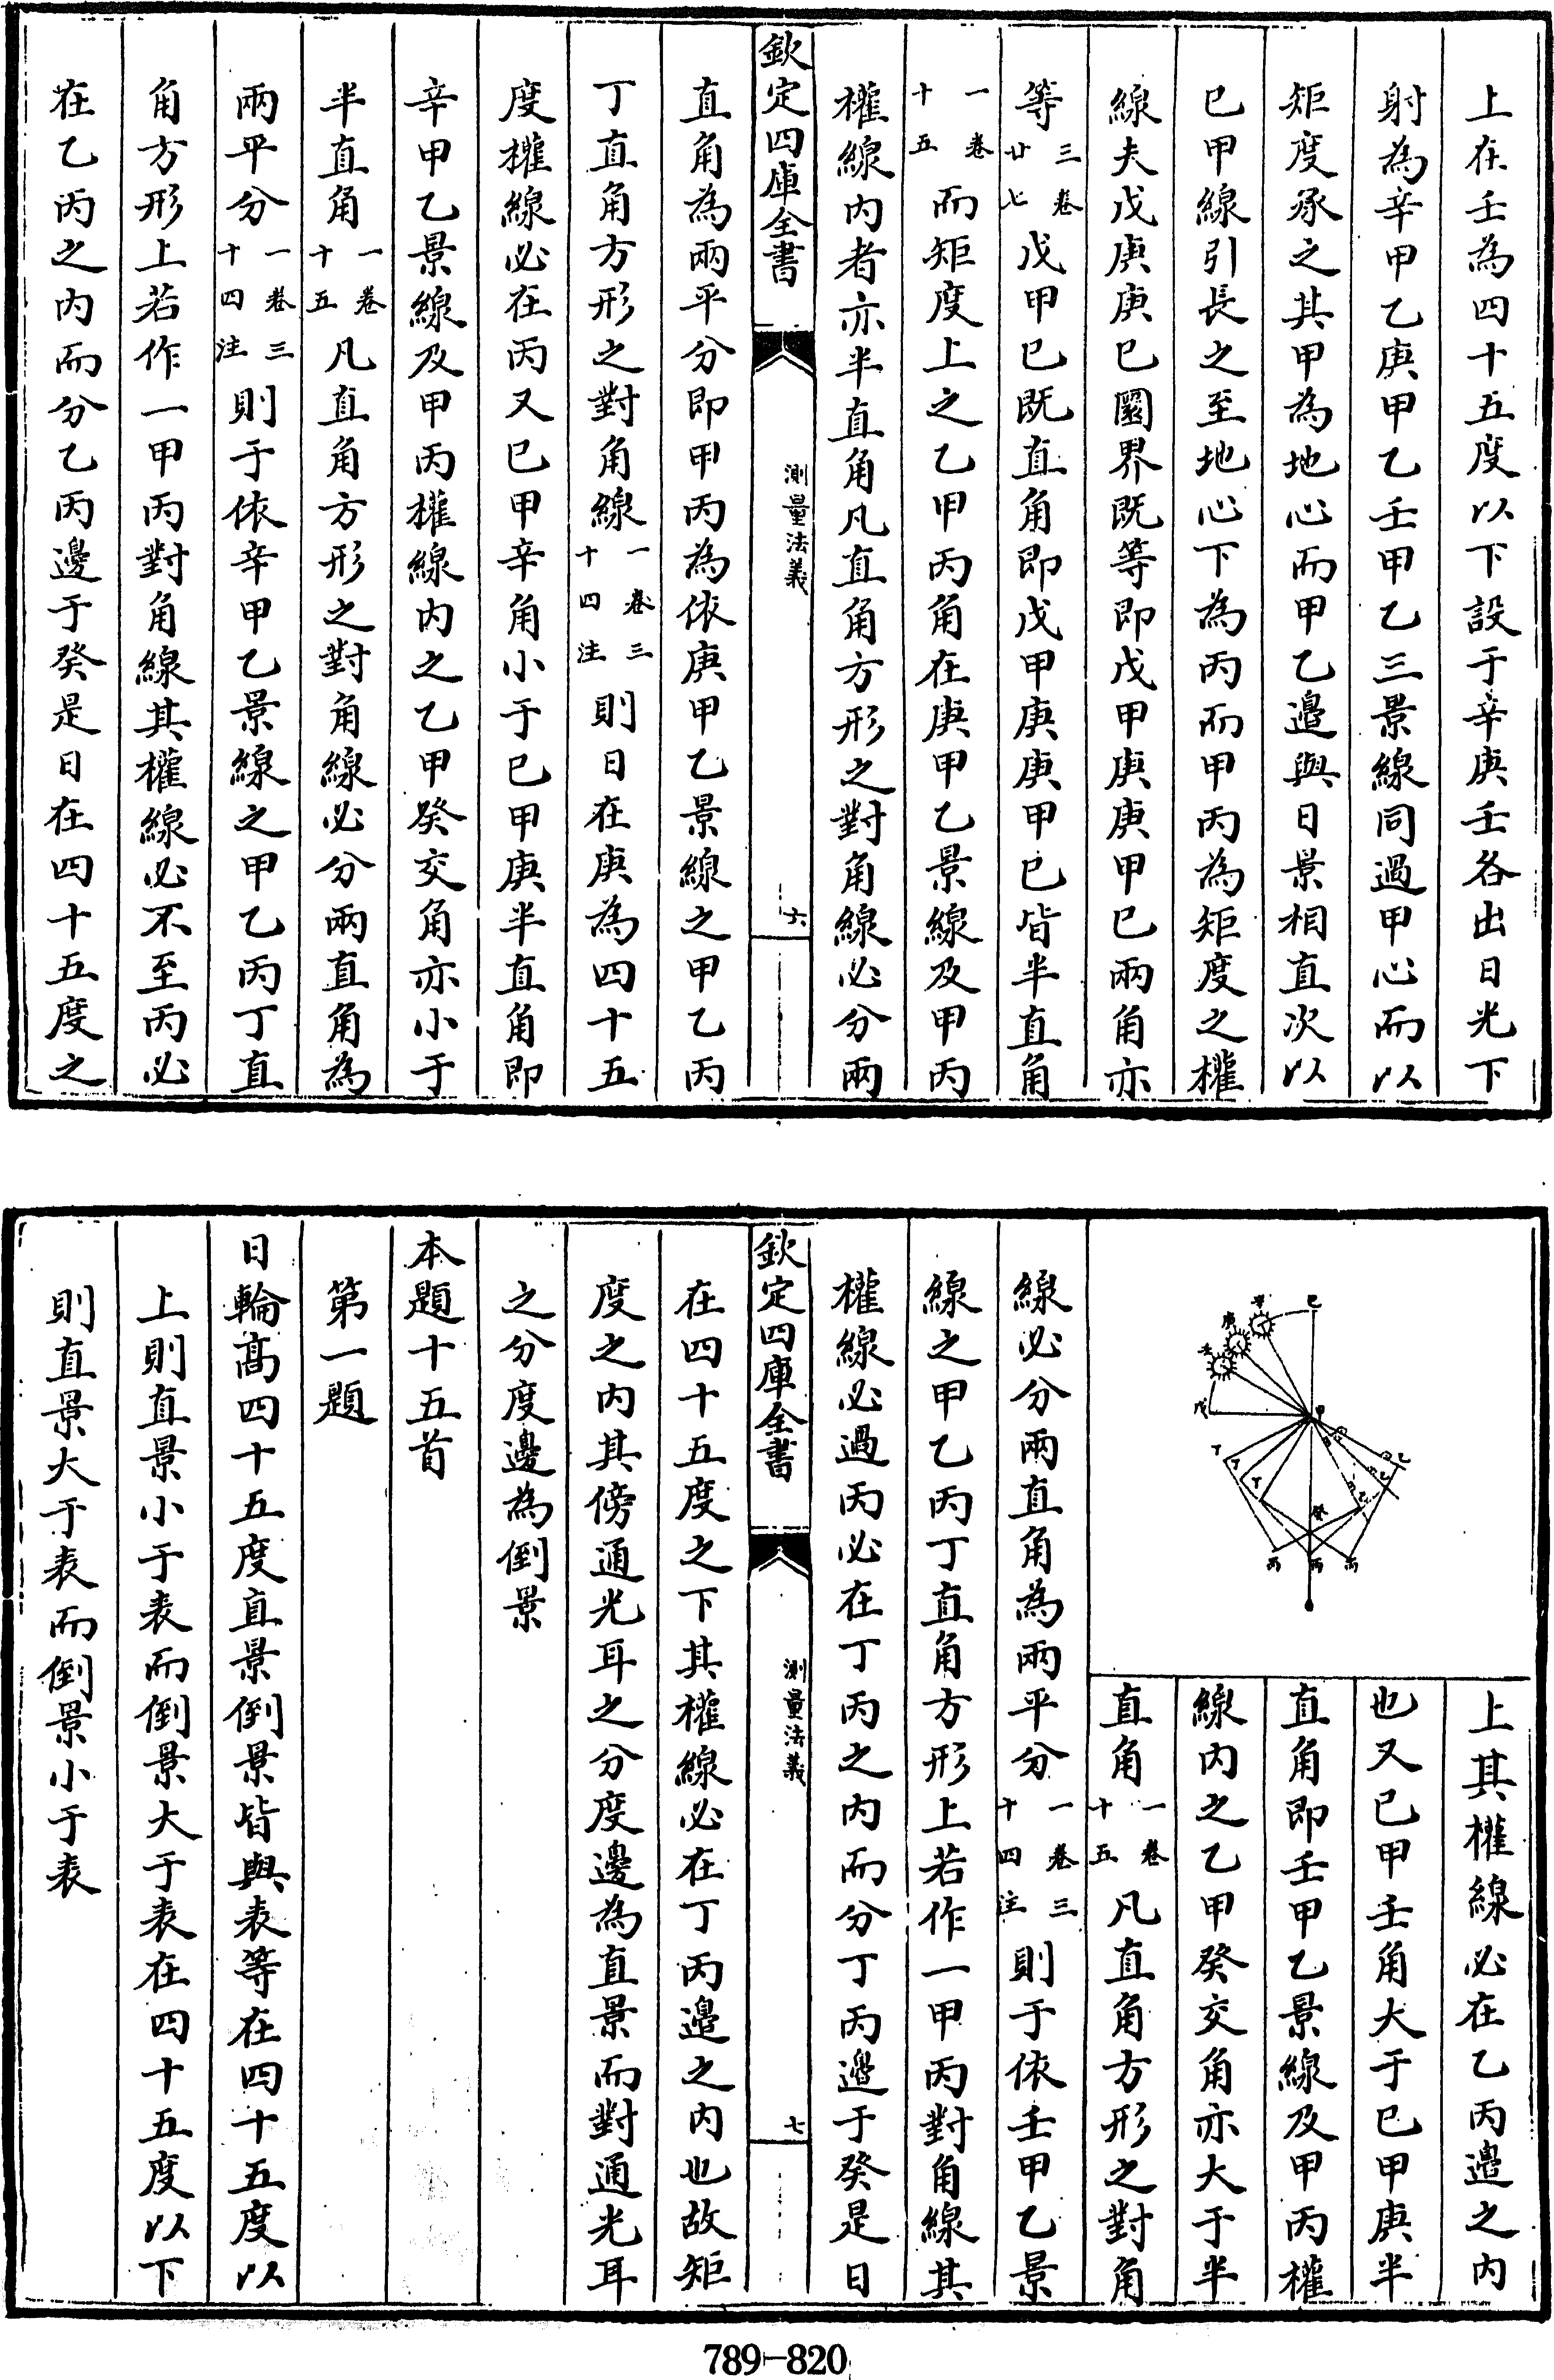 上在壬為四十五度以下設于辛庚壬各出日光下
射為辛甲乙庚甲乙壬甲乙三景線同過甲心而以
矩度承之其甲為地心而甲乙邊與日景相直次以
已甲線引長之至地心下為丙而甲丙為矩度之權
線夫戊庚庚已圜界既等即戊甲庚庚甲已兩角亦
等三卷廿七戊甲已既直角即戊甲庚庚甲已皆半直角
一卷十五而矩度上之乙甲丙角在庚甲乙景線及甲丙
權線内者亦半直角凡直角方形之對角線必分兩
欽定四庫全書
測量法義
六
直角為兩平分即甲丙為依庚甲乙景線之甲乙丙
丁直角方形之對角線一卷三十四注則日在庚為四十五
度權線必在丙又已甲辛角小于已甲庚半直角即
辛甲乙景線及甲丙權線内之乙甲癸交角亦小于
半直角一卷十五凡直角方形之對角線必分兩直角為
兩平分一卷三十四注則于依辛甲乙景線之甲乙丙丁直
角方形上若作一甲丙對角線其權線必不至丙必
在乙丙之内而分乙丙邊于癸是日在四十五度之
上其權線必在乙丙邊之内
也又已甲壬角大于已甲庚半
直角即壬甲乙景線及甲丙權
線内之乙甲癸交角亦大于半
直角一卷十五凡直角方形之對角
線必分兩直角為兩平分一卷三十四注則于依壬甲乙景
線之甲乙丙丁直角方形上若作一甲丙對角線其
權線必過丙必在丁丙之内而分丁丙邊于癸是日
欽定四庫全書
測量法義
七
在四十五度之下其權線必在丁丙邊之内也故矩
度之内其傍通光耳之分度邊為直景而對通光耳
之分度邊為倒景
本題十五首
第一題
日輪髙四十五度直景倒景皆與表等在四十五度以
上則直景小于表而倒景大于表在四十五度以下
則直景大于表而倒景小于表
辛
庚
壬
已
戊
甲
乙
丁
丁
癸
丙
丙
丙
789-820